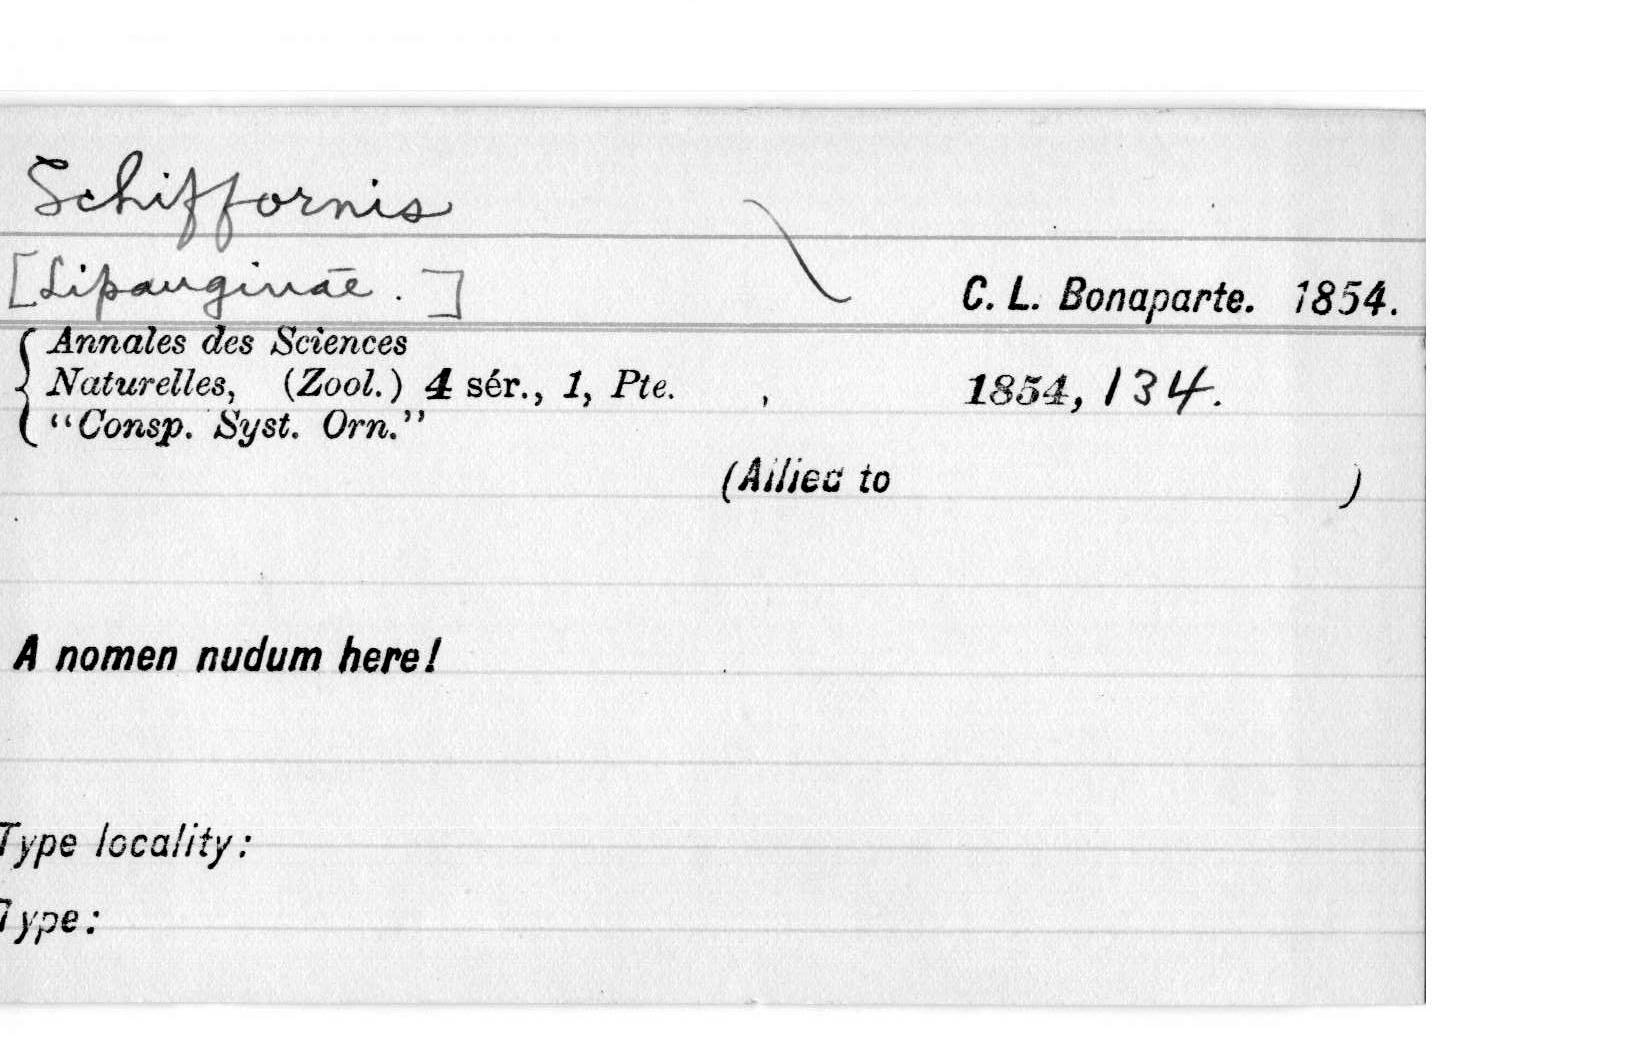 Schiffornis
[Lipauginae.]
C. L. Bonaparte. 1854.
Annales des Sciences
Naturelles, (Zool.) 4 sér., 1, Pte. , 1854, 134.
"Consp. Syst. Orn."
(Allied to )
A nomen nudum here!
Type locality:
Type: